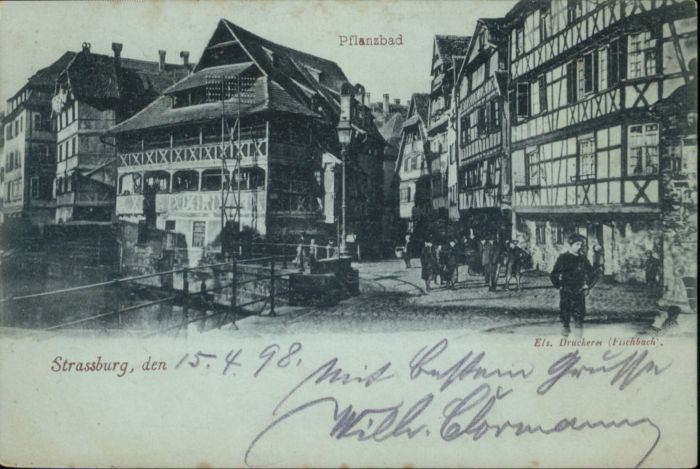 Pflanzbad
Els. Druckerei (Fischbach).
Strassburg, den 15.4.98.
Mit bestem Grusse
Wilh.